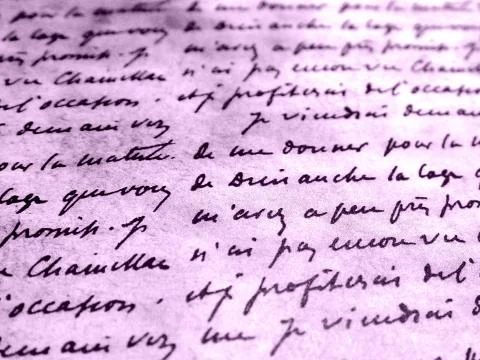 pour la matinée de me donner pour la matinée
la loge que vous de Dimanche la loge que vous
promise. Je m'avez a peu près promise. Je
vu Chamillac n'ai pas encore vu Chamillac
de l'occasion. et je profiterai de l'occasion
demain Je viendrai demain
pour la matinée. de me donner pour la
loge que vous de Dimanche la loge
promise. Je m'avez a peu près
Chamillac n'ai pas encore vu
l'occasion. et je profiterai de
demain Je viendrai